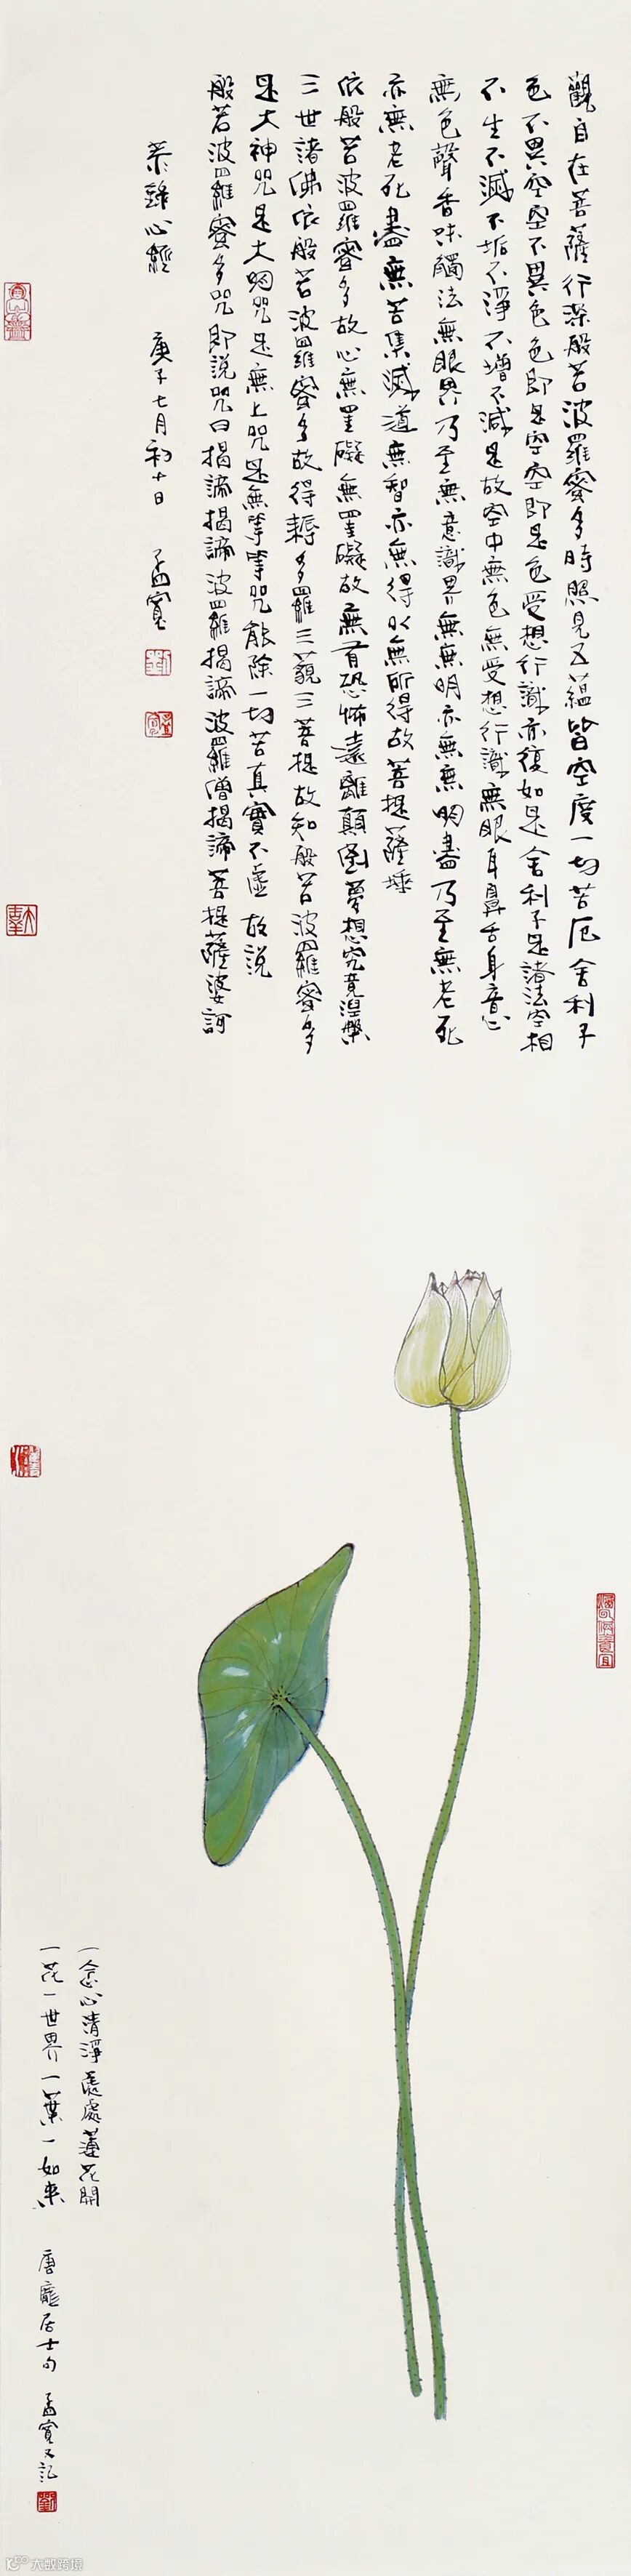 觀自在菩薩行深般若波羅蜜多時照見五蘊皆空度一切苦厄舍利子
色不異空空不異色色即是空空即是色受想行識亦復如是舍利子是諸法空相
不生不滅不垢不淨不增不減是故空中無色無受想行識無眼耳鼻舌身意
無色聲香味觸法無眼界乃至無意識界無無明亦無無明盡乃至無老死
亦無老死盡無苦集滅道無智亦無得以無所得故菩提薩埵
依般若波羅蜜多故心無罣礙無罣礙故無有恐怖遠離顛倒夢想究竟涅槃
三世諸佛依般若波羅蜜多故得耨多羅三藐三菩提故知般若波羅蜜多
是大神咒是大明咒是無上咒是無等等咒能除一切苦真實不虛故説
般若波羅蜜多咒即説咒曰揭諦揭諦波羅揭諦波羅僧揭諦菩提薩婆訶
恭錄心經 庚子七月初十日 孟寬
一念心清淨處處蓮花開
一花一世界一葉一如来 唐龐居士句 孟寬又記
大蚁跨境